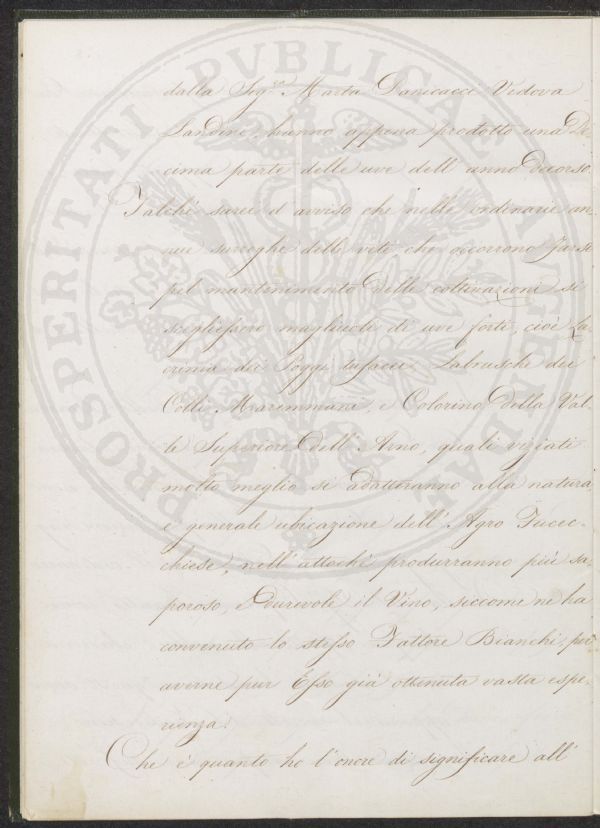 dalla Sig.ra Marta Panicacci Vedova
Landini, hanno appena prodotto una De-
cima parte delle uve dell'anno decorso.
Talchè sarei d'avviso che nelle ordinarie an-
nue surroghe delle viti che occorrono farsi
pel mantenimento delle coltivazioni si
scegliessero magliuoli di uve forti, cioè La-
crima dei Poggi tufacei, Labrusche dei
Colli Maremmani, e Colorino della Val-
le Superiore dell'Arno, quali viziati
molto meglio si adatteranno alla natura,
e generale ubicazione dell'Agro Fucec-
chiese, nell'attochè produrranno più sa-
poroso, e durevole il Vino, siccome ne ha
convenuto lo stesso Fattore Bianchi, per
averne pur Esso già ottenuta vasta espe-
rienza.
Che è quanto ho l'onore di significare all'
PROSPERITATI PVBLICAE